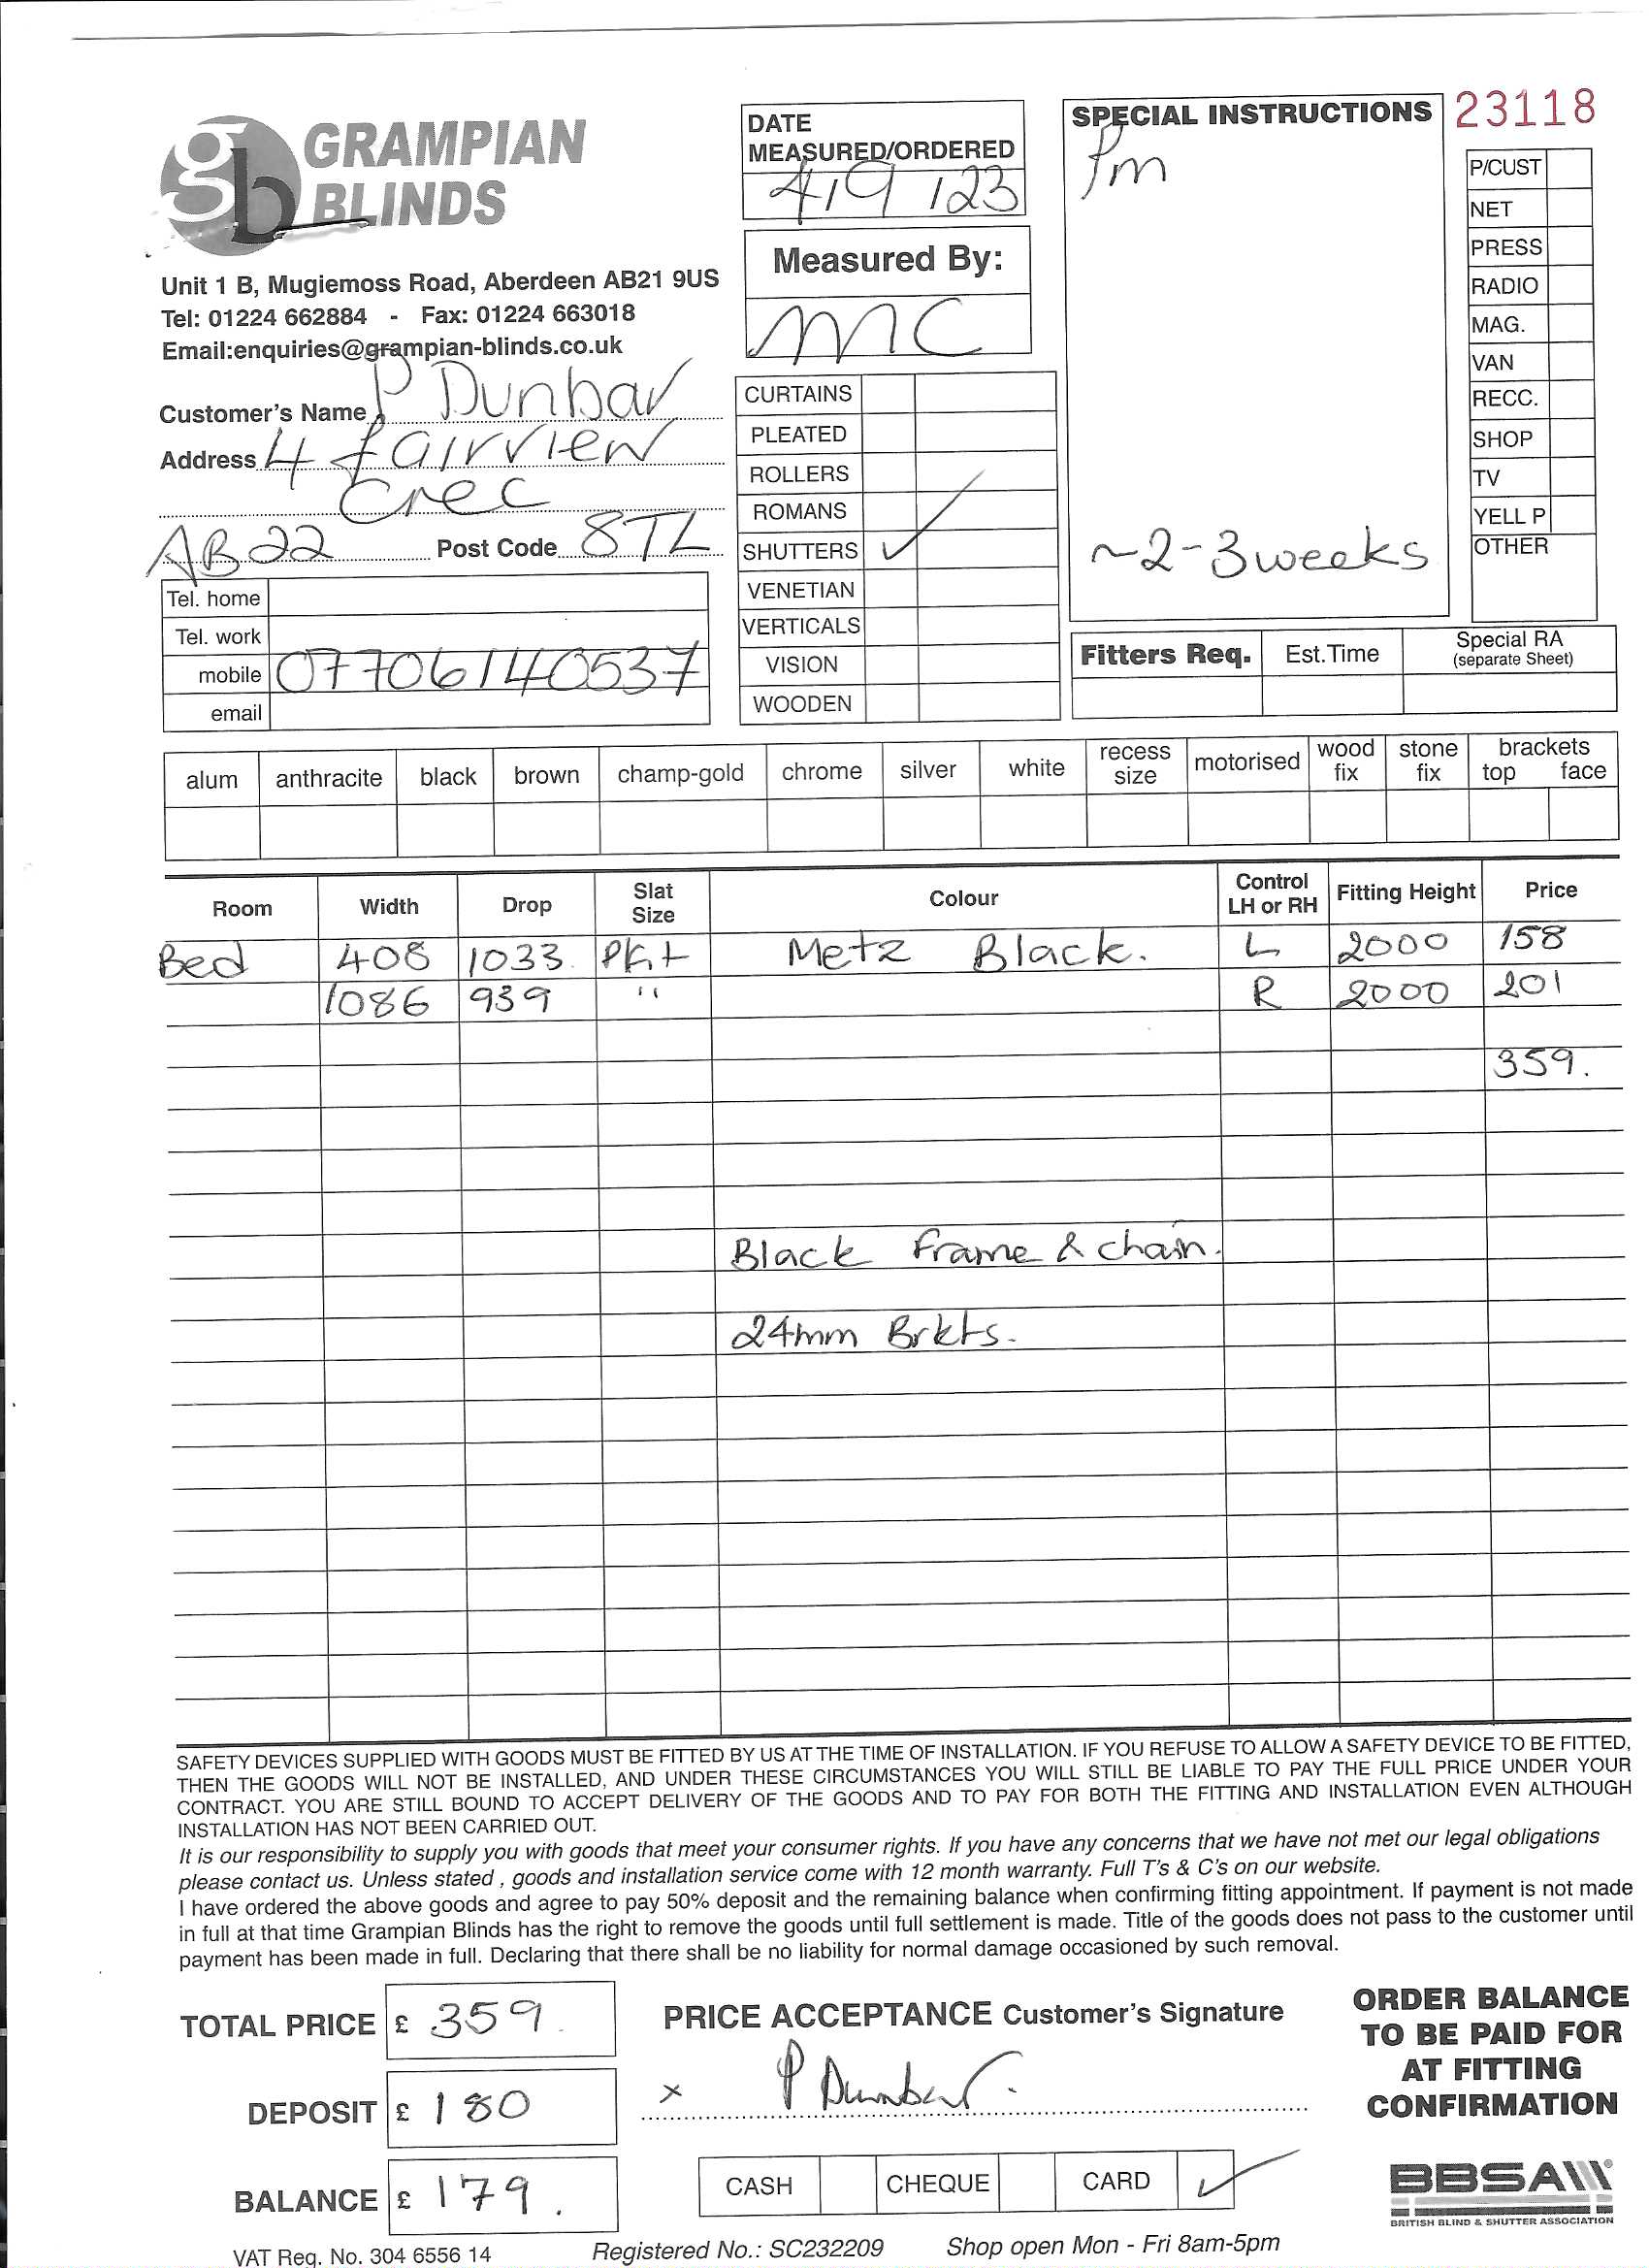 GRAMPIAN
BLINDS
gb
Unit 1 B, Mugiemoss Road, Aberdeen AB21 9US
Tel: 01224 662884 - Fax: 01224 663018
Email:enquiries@grampian-blinds.co.uk
Customer's Name P Dunbar
Address 4 fairview
Crec
AB22 Post Code 8TL
Tel. home
Tel. work
mobile 07706140537
email
DATE
MEASURED/ORDERED
4/9/23
Measured By:
MC
CURTAINS
PLEATED
ROLLERS
ROMANS
SHUTTERS ✓
VENETIAN
VERTICALS
VISION
WOODEN
SPECIAL INSTRUCTIONS
Pm
~2-3 weeks
23118
P/CUST
NET
PRESS
RADIO
MAG.
VAN
RECC.
SHOP
TV
YELL P
OTHER
Fitters Req. Est.Time Special RA
(separate Sheet)
alum anthracite black brown champ-gold chrome silver white recess size motorised wood fix stone fix brackets top face
Room Width Drop Slat Size Colour Control LH or RH Fitting Height Price
Bed 408 1033 Pkt Metz Black. L 2000 158
1086 939 " R 2000 201
359.
Black Frame & chain.
24mm Brkts.
SAFETY DEVICES SUPPLIED WITH GOODS MUST BE FITTED BY US AT THE TIME OF INSTALLATION. IF YOU REFUSE TO ALLOW A SAFETY DEVICE TO BE FITTED,
THEN THE GOODS WILL NOT BE INSTALLED, AND UNDER THESE CIRCUMSTANCES YOU WILL STILL BE LIABLE TO PAY THE FULL PRICE UNDER YOUR
CONTRACT. YOU ARE STILL BOUND TO ACCEPT DELIVERY OF THE GOODS AND TO PAY FOR BOTH THE FITTING AND INSTALLATION EVEN ALTHOUGH
INSTALLATION HAS NOT BEEN CARRIED OUT.
It is our responsibility to supply you with goods that meet your consumer rights. If you have any concerns that we have not met our legal obligations
please contact us. Unless stated , goods and installation service come with 12 month warranty. Full T's & C's on our website.
I have ordered the above goods and agree to pay 50% deposit and the remaining balance when confirming fitting appointment. If payment is not made
in full at that time Grampian Blinds has the right to remove the goods until full settlement is made. Title of the goods does not pass to the customer until
payment has been made in full. Declaring that there shall be no liability for normal damage occasioned by such removal.
TOTAL PRICE £ 359.
DEPOSIT £ 180
BALANCE £ 179.
PRICE ACCEPTANCE Customer's Signature
x P Dunbar.
CASH CHEQUE CARD ✓
ORDER BALANCE
TO BE PAID FOR
AT FITTING
CONFIRMATION
BBSA
BRITISH BLIND & SHUTTER ASSOCIATION
VAT Reg. No. 304 6556 14 Registered No.: SC232209 Shop open Mon - Fri 8am-5pm